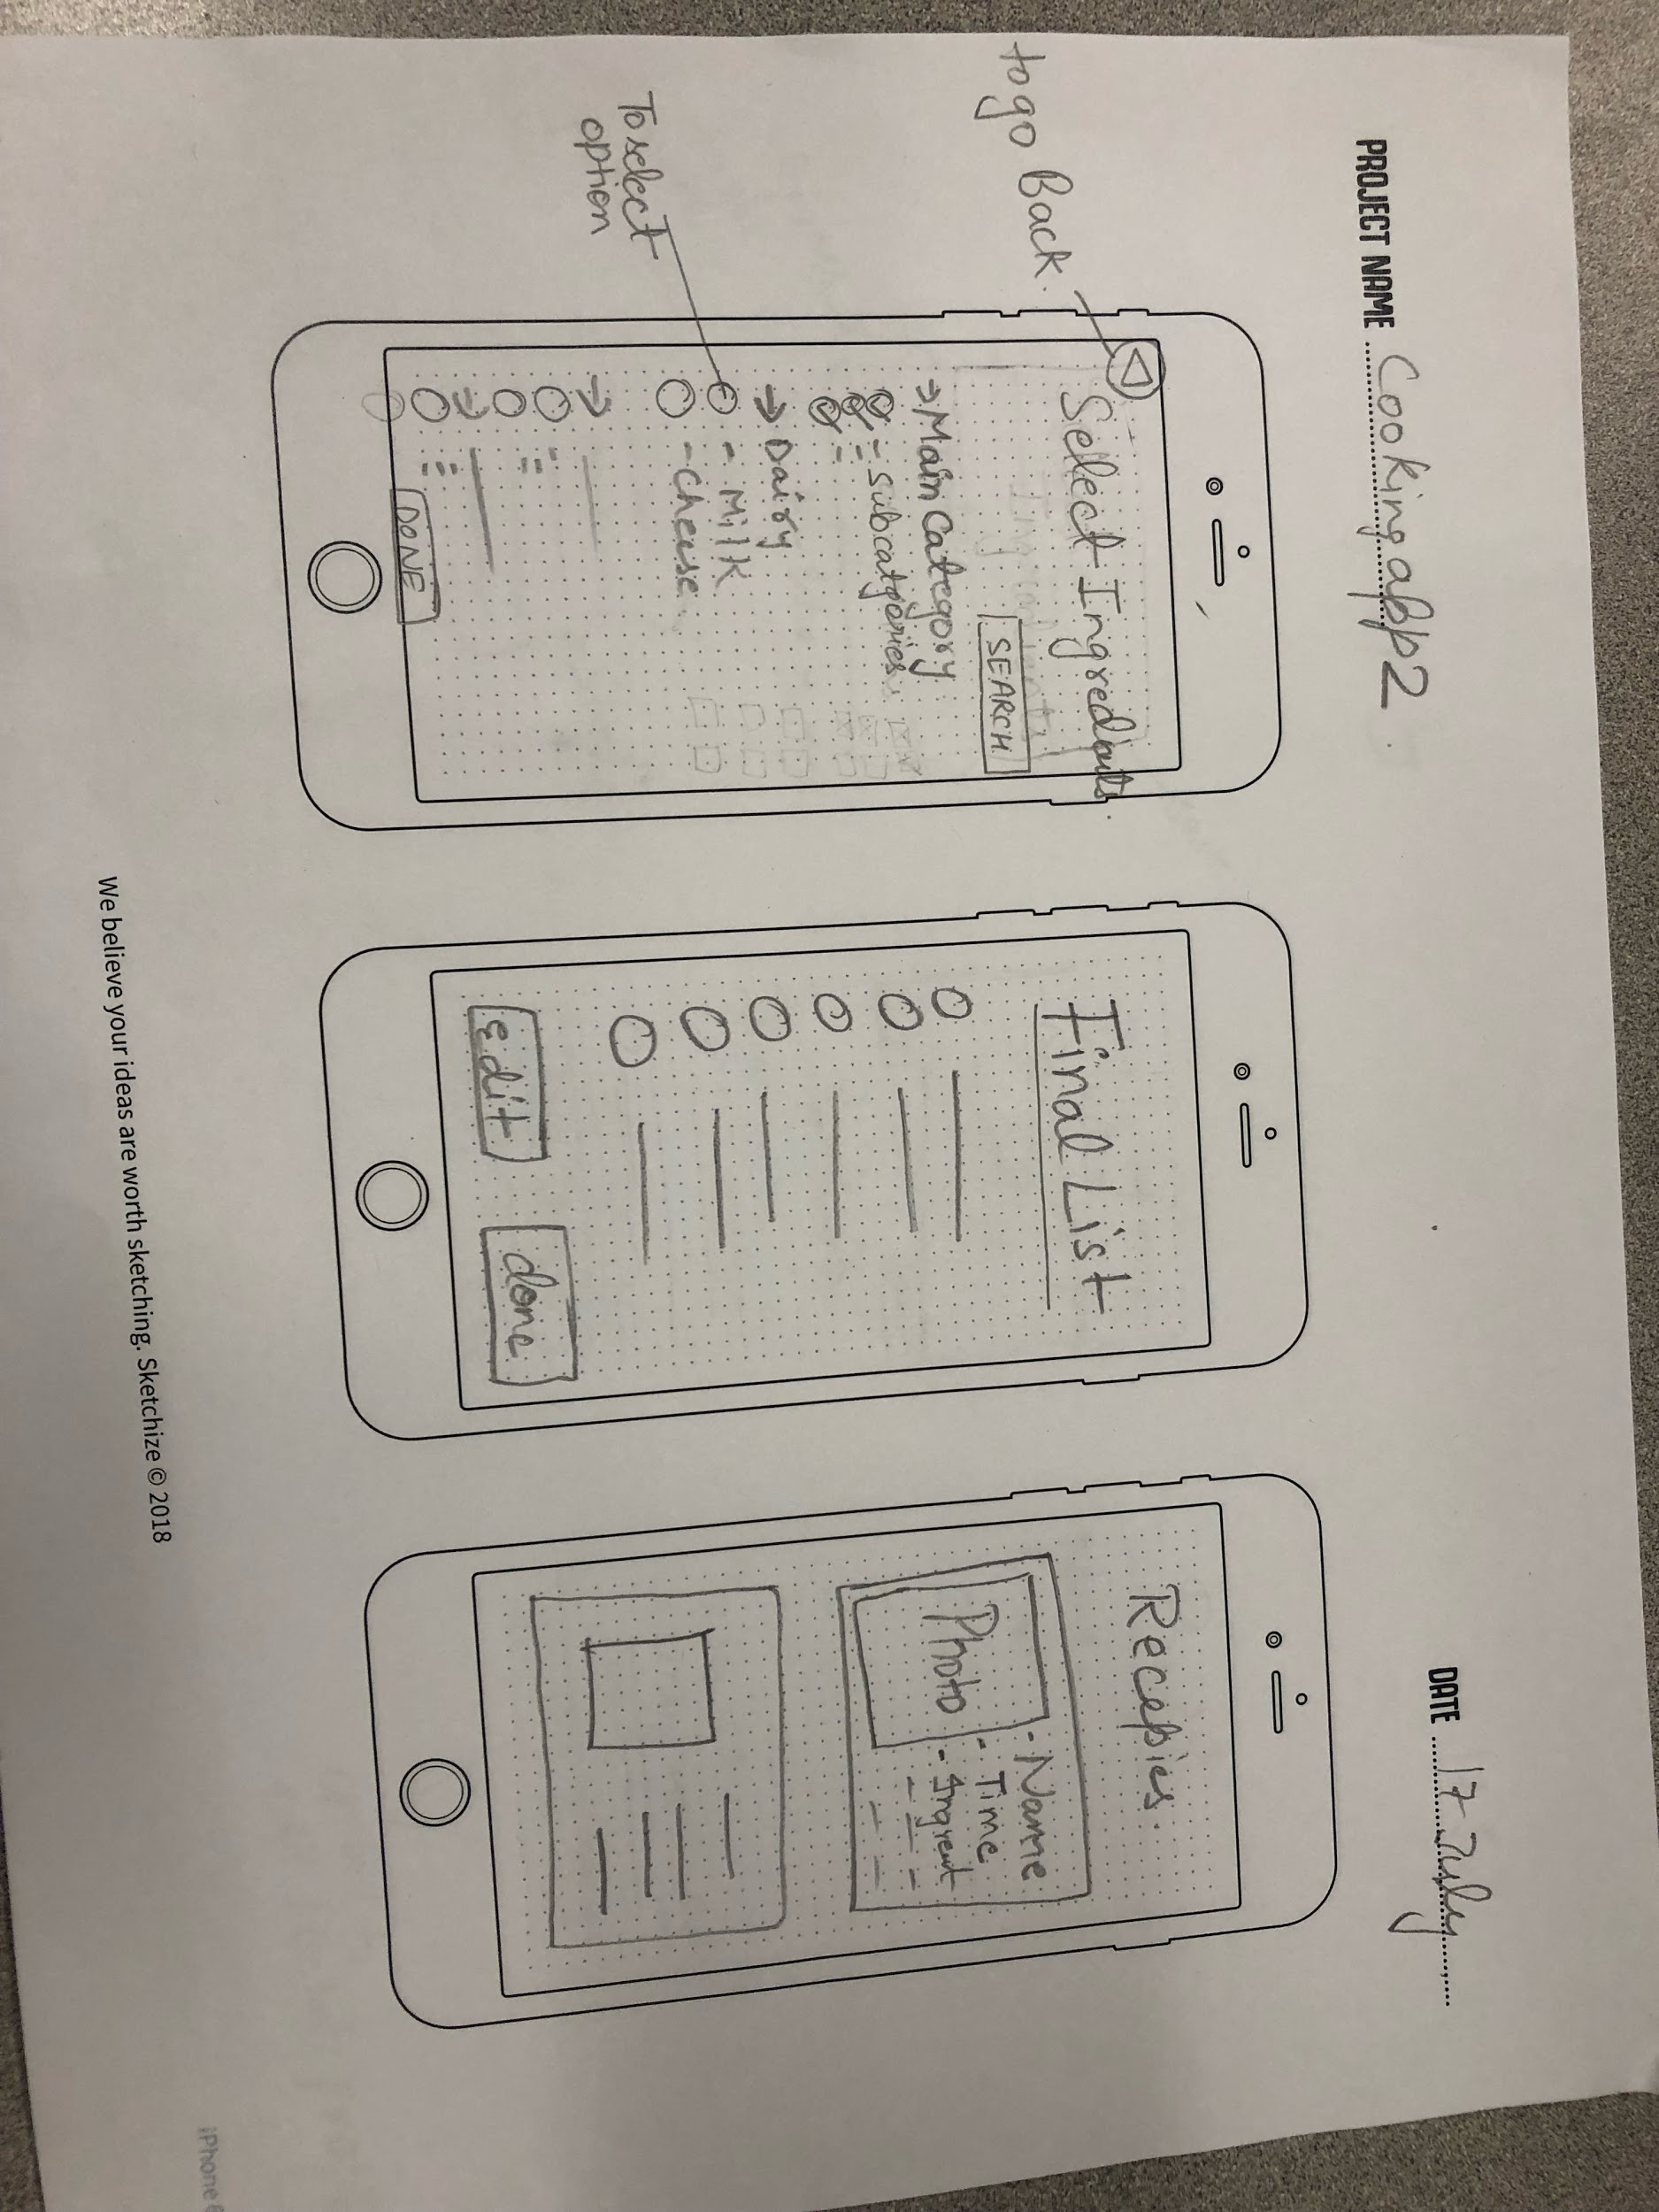 PROJECT NAME Cooking app 2
DATE 17 July
to go Back.
To select
option
Select Ingredients.
SEARCH
→ Main Category
- Subcategories
-
-
→ Dairy
- Milk
- Cheese
DONE
Final List
Edit
done
Recepies.
Photo
- Name
- Time
We believe your ideas are worth sketching. Sketchize © 2018
iPhone 6